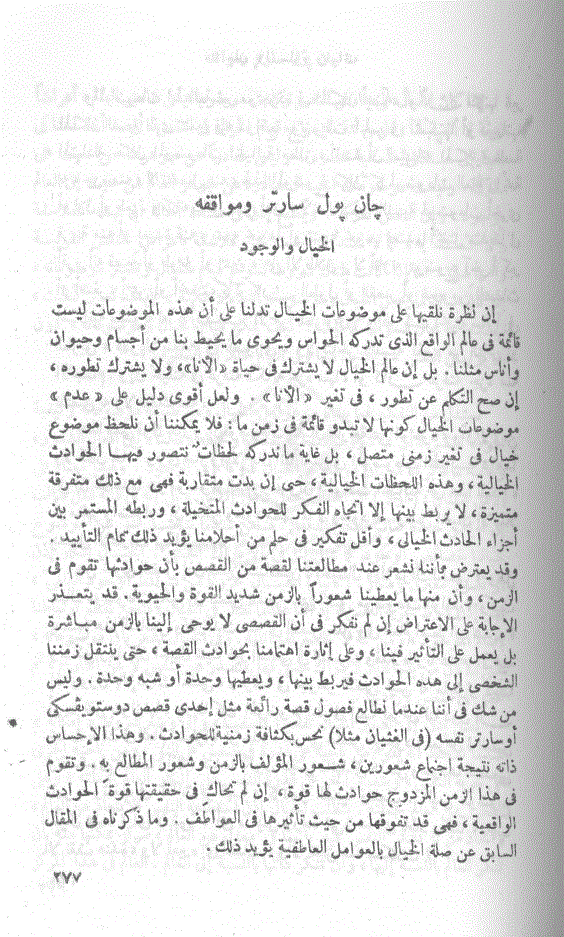 چان پول سارتر ومواقفه
الخيال والوجود
إن نظرة نلقيها على موضوعات الخيال تدلنا على أن هذه الموضوعات ليست
قائمة فى عالم الواقع الذى تدركه الحواس ويحوى ما يحيط بنا من أجسام وحيوان
وأناس مثلنا . بل إن عالم الخيال لا يشترك فى حياة «الأنا»، ولا يشترك تطوره ،
إن صح التكلم عن تطور ، فى تغير «الأنا» . ولعل أقوى دليل على «عدم»
موضوعات الخيال كونها لا تبدو قائمة فى زمن ما : فلا يمكننا أن نلحظ موضوع
خيال فى تغير زمنى متصل ، بل غاية ما ندركه لحظات تتصور فيها الحوادث
الخيالية ، وهذه اللحظات الخيالية ، حتى إن بدت متقاربة فهى مع ذلك متفرقة
متميزة ، لا يربط بينها إلا اتجاه الفكر للحوادث المتخيلة ، وربطه المستمر بين
أجزاء الحادث الخيالى ، وأقل تفكير فى حلم من أحلامنا يؤيد ذلك تمام التأييد .
وقد يعترض بأننا نشعر عند مطالعتنا لقصة من القصص بأن حوادثها تقوم فى
الزمن ، وأن منها ما يعطينا شعوراً بالزمن شديد القوة والحيوية . قد يتعذر
الإجابة على الاعتراض إن لم نفكر فى أن القصصى لا يوحى إلينا بالزمن مباشرة
بل يعمل على التأثير فينا ، وعلى إثارة اهتمامنا بحوادث القصة ، حتى ينتقل زمننا
الشخصى إلى هذه الحوادث فيربط بينها ، ويعطيها وحدة أو شبه وحدة . وليس
من شك فى أننا عندما نطالع فصول قصة رائعة مثل إحدى قصص دوستويڤسكى
أو سارتر نفسه (فى الغثيان مثلا) نحس بكثافة زمنية للحوادث . وهذا الإحساس
ذاته نتيجة اجتماع شعورين ، شعور المؤلف بالزمن وشعور المطالع به . وتقوم
فى هذا الزمن المزدوج حوادث لها قوة ، إن لم تحاك فى حقيقتها قوة الحوادث
الواقعية ، فهى قد تفوقها من حيث تأثيرها فى العواطف . وما ذكرناه فى المقال
السابق عن صلة الخيال بالعوامل العاطفية يؤيد ذلك .
٢٧٧